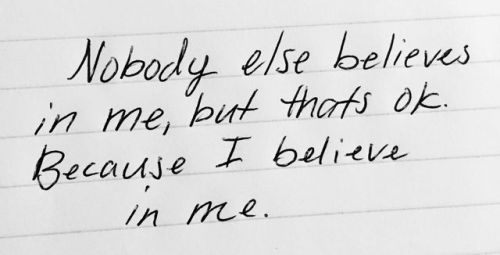 Nobody else believes
in me, but thats ok.
Because I believe
in me.